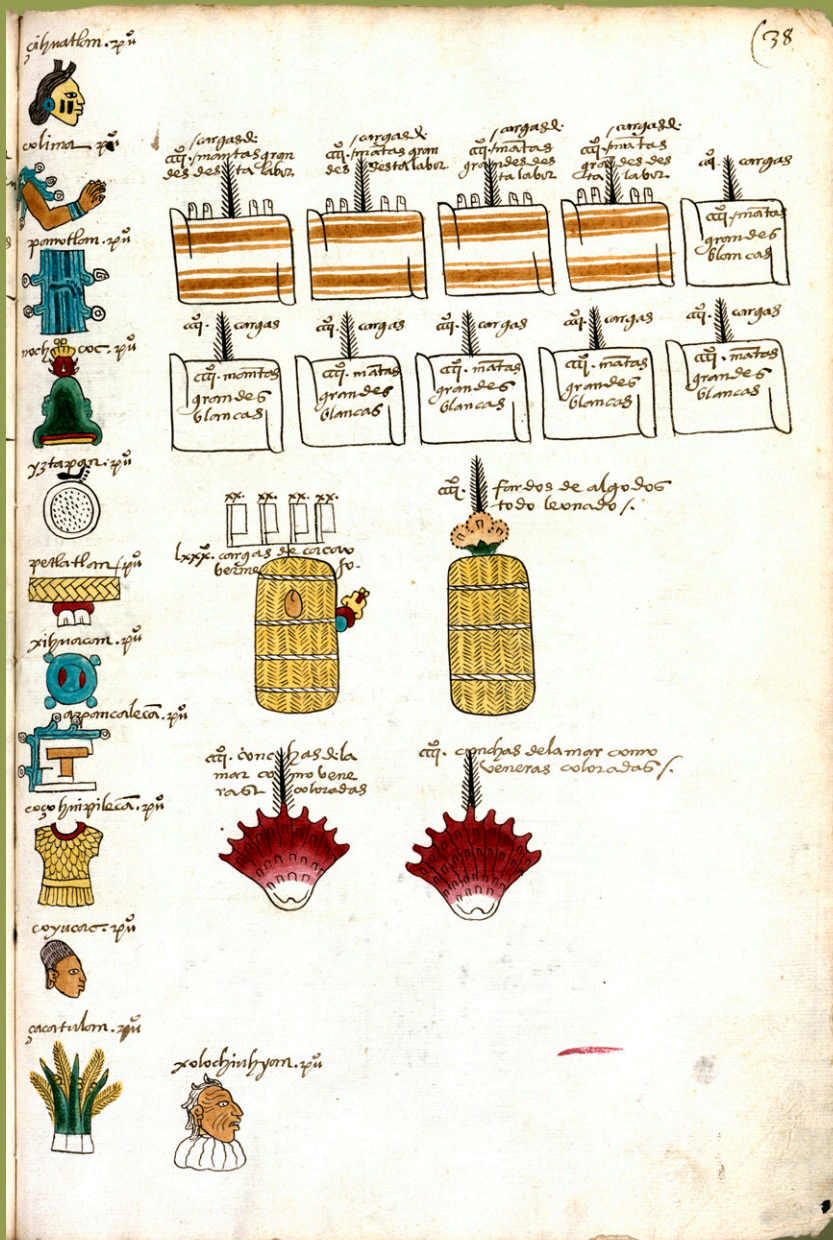 (38
çihuatlan. puº
colima. puº
panotlan. puº
nochcoc. puº
yztapan. puº
petlatlan. puº
xihuacan. puº
apancalecā. puº
coçohuipilecā. puº
coyucac. puº
çacatulan. puº
xolochiuhyan. puº
cargas de
cccc. mantas gran
des desta labor
cargas de
cccc. mātas gran
des desta labor
cargas de
cccc. mātas
grandes des
ta labor
cargas de
cccc. mātas
grandes des
ta labor
cccc. cargas
cccc. mātas
grandes
blancas
cccc. cargas
cccc. mantas
grandes
blancas
cccc. cargas
cccc. mātas
grandes
blancas
cccc. cargas
cccc. mātas
grandes
blancas
cccc. cargas
cccc. mātas
grandes
blancas
cccc. cargas
cccc. mātas
grandes
blancas
xx. xx. xx. xx.
lxxx. cargas de cacao
bermejo.
cccc. fardos de algodō
todo leonado /.
cccc. conchas de la
mar como vene
ras coloradas
cccc. conchas de la mar como
veneras coloradas /.